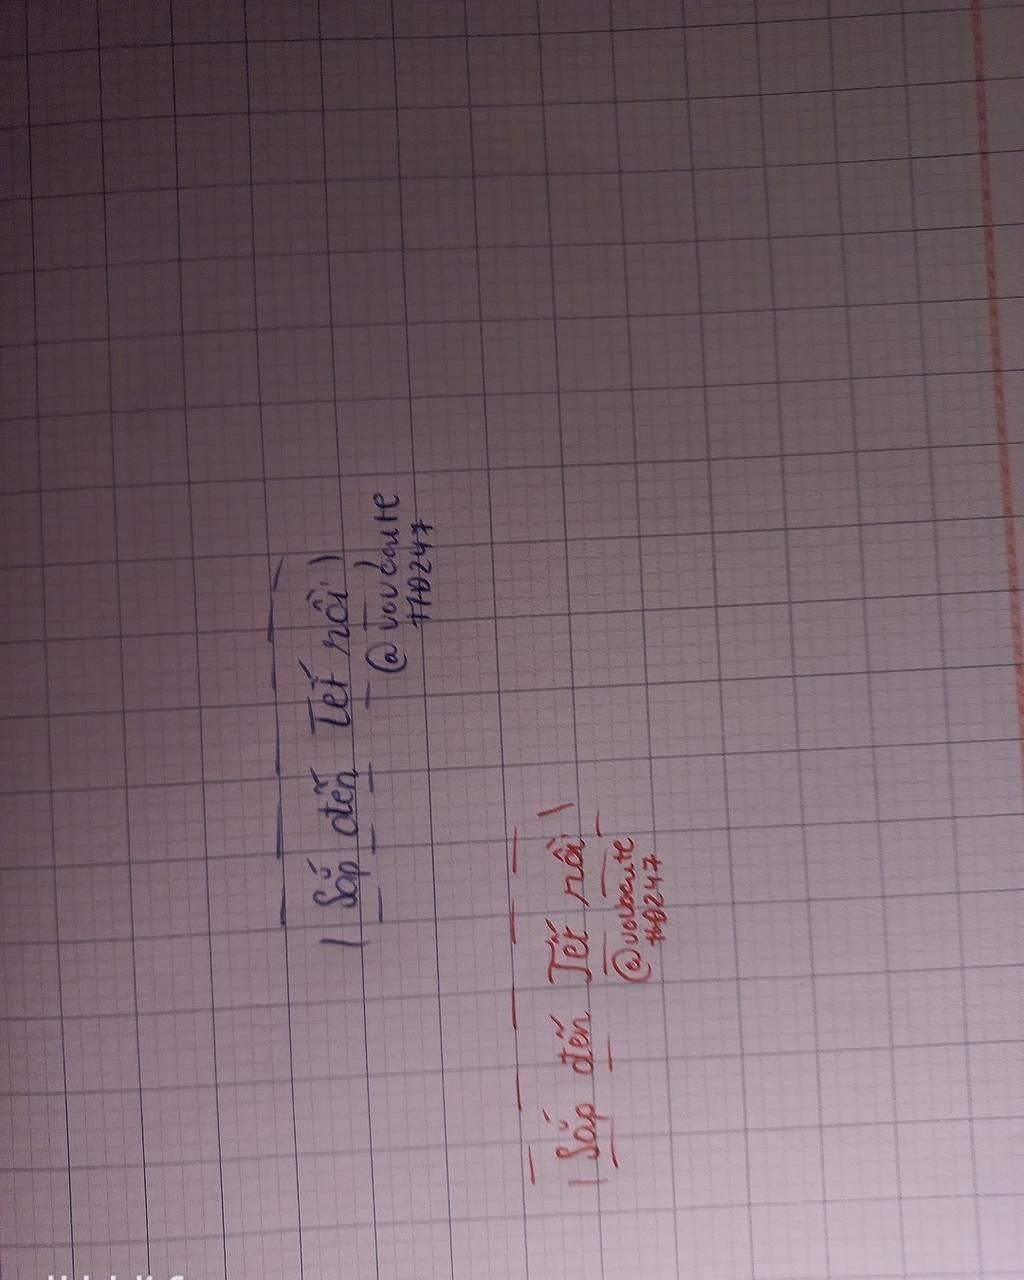 Sắp đến Tết rồi
@vovbcute
HD247
Sắp đến Tết rồi
@vovbcute
HD247